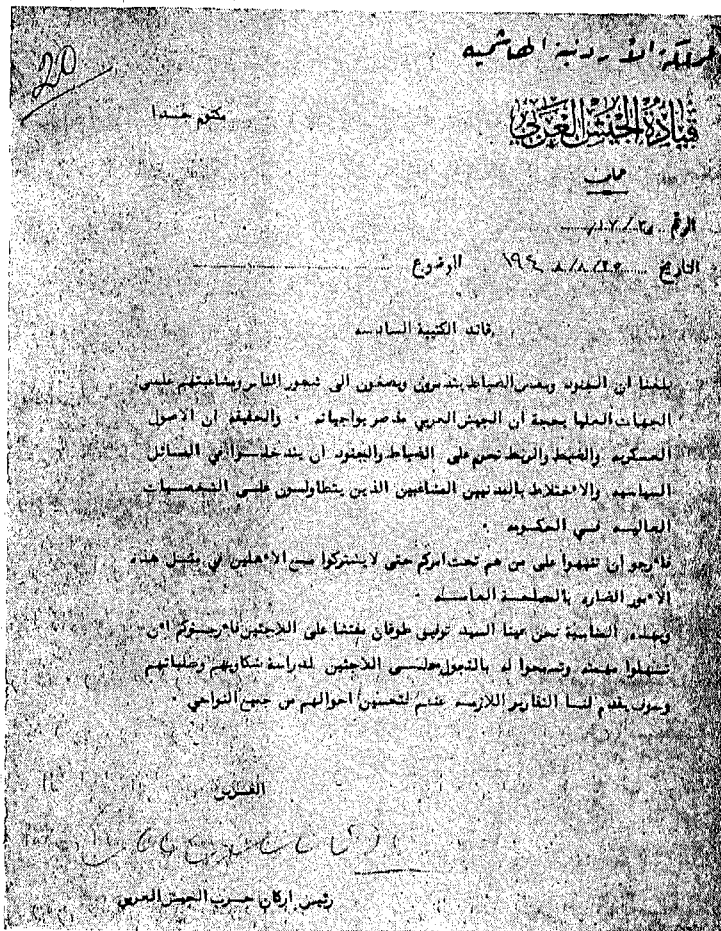 20
المملكة الأردنية الهاشميه
مكتوم جدا
قيادة الجيش العربي
عمان
الرقم
التاريخ ٨/٢٣/ ١٩٤٨ الموضوع
قائد الكتيبة السادسه
بلغنا ان الجنود وبعض الضباط يتذمرون ويصغون الى شعور الناس ومشاغبتهم علـى
الجهات العليا بحجة ان الجيش العربي مقصر بواجباته ٠ والحقيقه ان الاصول
العسكريه والضبط والربط تحرم على الضباط والجنود ان يتدخلـوا في المسائل
السياسيه والاختلاط بالمدنيين المشاغبين الذين يتطاولـون علـى الشخصيـات
العاليـه فـي الحكومه ٠
فأرجو ان تنبهوا على من هم تحت امركم حتى لا يشتركوا مـع الأهلين في مثـل هـذه
الأمور الضاره بالمصلحـة العامـه ٠
وبهذه المناسبة نحن عينا السيد توفيق طوقان مفتشا على اللاجئين فأرجـوكم ان
تسهلوا مهمته وتسمحوا له بالتجول علـى اللاجئين لدراسة شكاويهم وطلباتهم
وسوف يقدم لنـا التقارير اللازمـه عنهم لتحسين احوالهم من جميع النواحي ٠
الفريق
رئيس اركان حـرب الجيش العربي